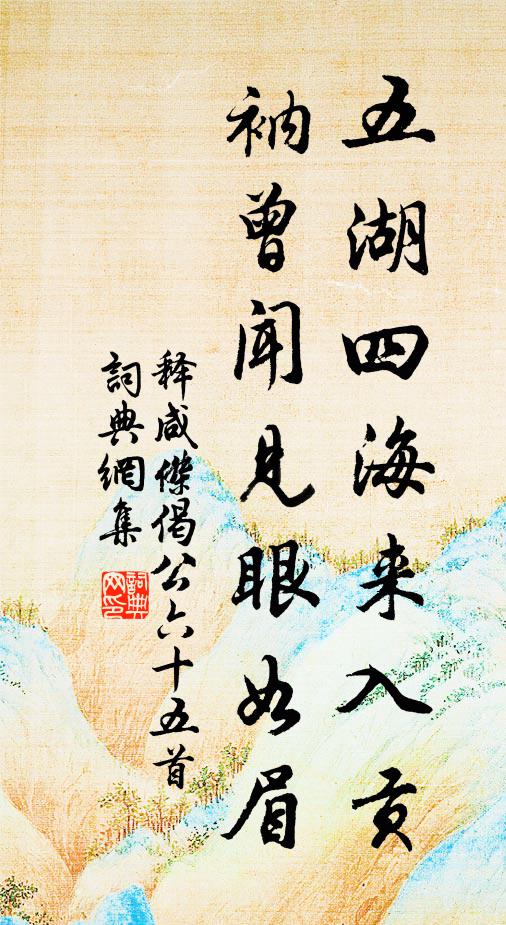 五湖四海来入贡
衲曾闻见眼如眉
释咸傑偈公六十五首
詞典網集
詞典網印